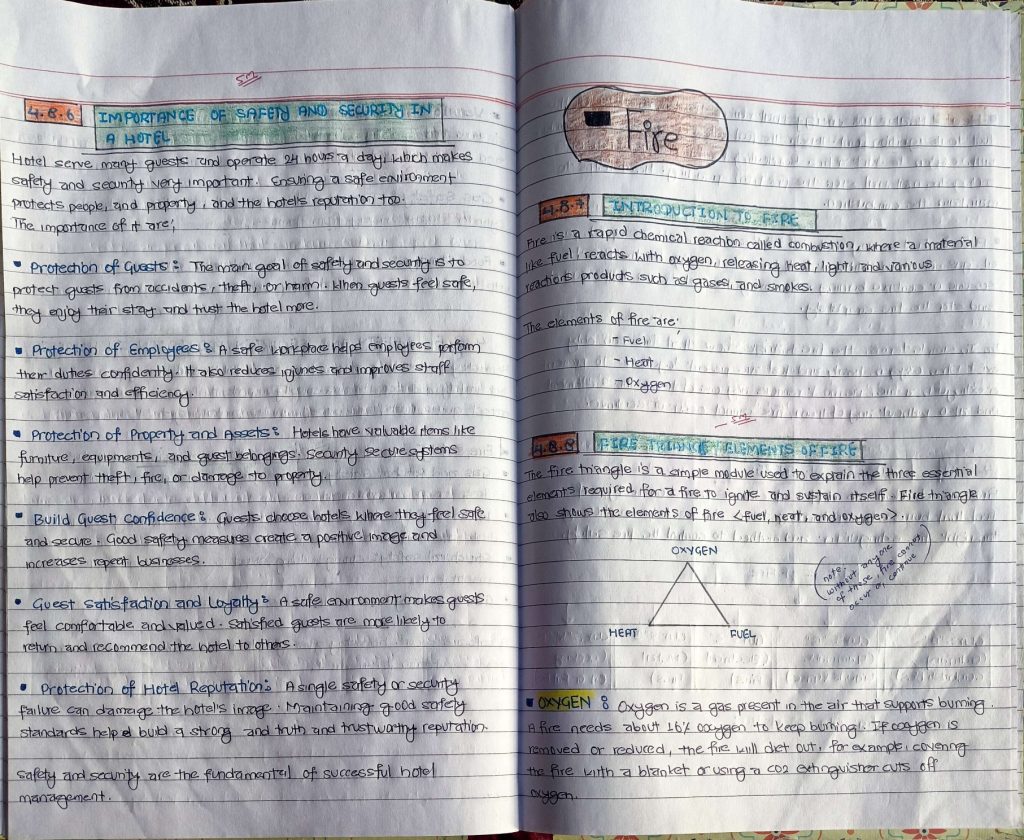 4.8.6 IMPORTANCE OF SAFETY AND SECURITY IN
A HOTEL
Hotel serve many guests and operate 24 hours a day, which makes
safety and security very important. Ensuring a safe environment
protects people, and property, and the hotel's reputation too.
The importance of it are;
• Protection of Guests: The main goal of safety and security is to
protect guests from accidents, theft, or harm. When guests feel safe,
they enjoy their stay and trust the hotel more.
• Protection of Employees: A safe workplace helps employees perform
their duties confidently. It also reduces injuries and improves staff
satisfaction and efficiency.
• Protection of Property and Assets: Hotels have valuable items like
furniture, equipments, and guest belongings. Security secure systems
help prevent theft, fire, or damage to property.
• Build Guest Confidence: Guests choose hotels where they feel safe
and secure. Good safety measures create a positive image and
increases repeat businesses.
• Guest Satisfaction and Loyalty: A safe environment makes guests
feel comfortable and valued. Satisfied guests are more likely to
return and recommend the hotel to others.
• Protection of Hotel Reputation: A single safety or security
failure can damage the hotel's image. Maintaining good safety
standards help build a strong and truth and trustworthy reputation.
Safety and security are the fundamental of successful hotel
management.
Fire
4.8.7 INTRODUCTION TO FIRE
Fire is a rapid chemical reaction called combustion, where a material
like fuel, reacts with oxygen, releasing heat, light, and various
reactions products such as gases, and smokes.
The elements of fire are:
- Fuel
- Heat
- Oxygen
4.8.8 FIRE TRIANGLE ELEMENTS OF FIRE
The fire triangle is a simple module used to exprain the three essential
elements required for a fire to ignite and sustain itself. Fire triangle
also shows the elements of fire <fuel, heat, and oxygen>.
OXYGEN
HEAT FUEL
note:
without any one
of these, fire cannot
occur or continue
• OXYGEN: Oxygen is a gas present in the air that supports burning.
A fire needs about 16% oxygen to keep burning. If oxygen is
removed or reduced, the fire will diet out, for example, covering
the fire with a blanket or using a CO2 extinguisher cuts off
oxygen.